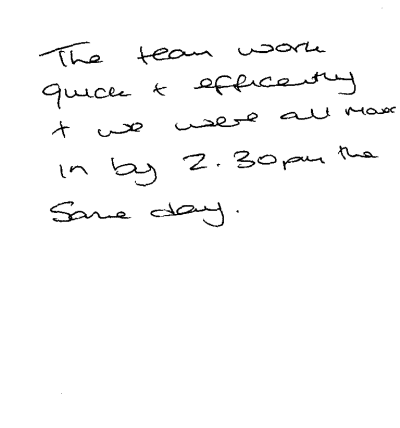 The team work
quick + efficently
+ we were all
in by 2.30pm the
same day.